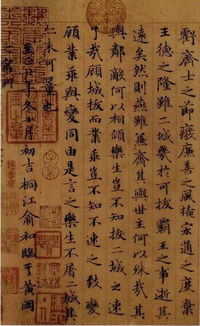 虧齊士之節廢廉善之風掩宏通之度棄
王德之隆雖二城幾於可拔霸王之事逝其
遠矣然則燕雖兼齊其與世主何以殊哉其
與鄰敵何以相傾樂生豈不知拔二城之速
了哉顧城拔而業乖豈不知不速之致變
顧業乖與變同由是言之樂生不屠二城其
亦未可量也
年冬十月初吉桐江俞和臨于黃岡
之寓所